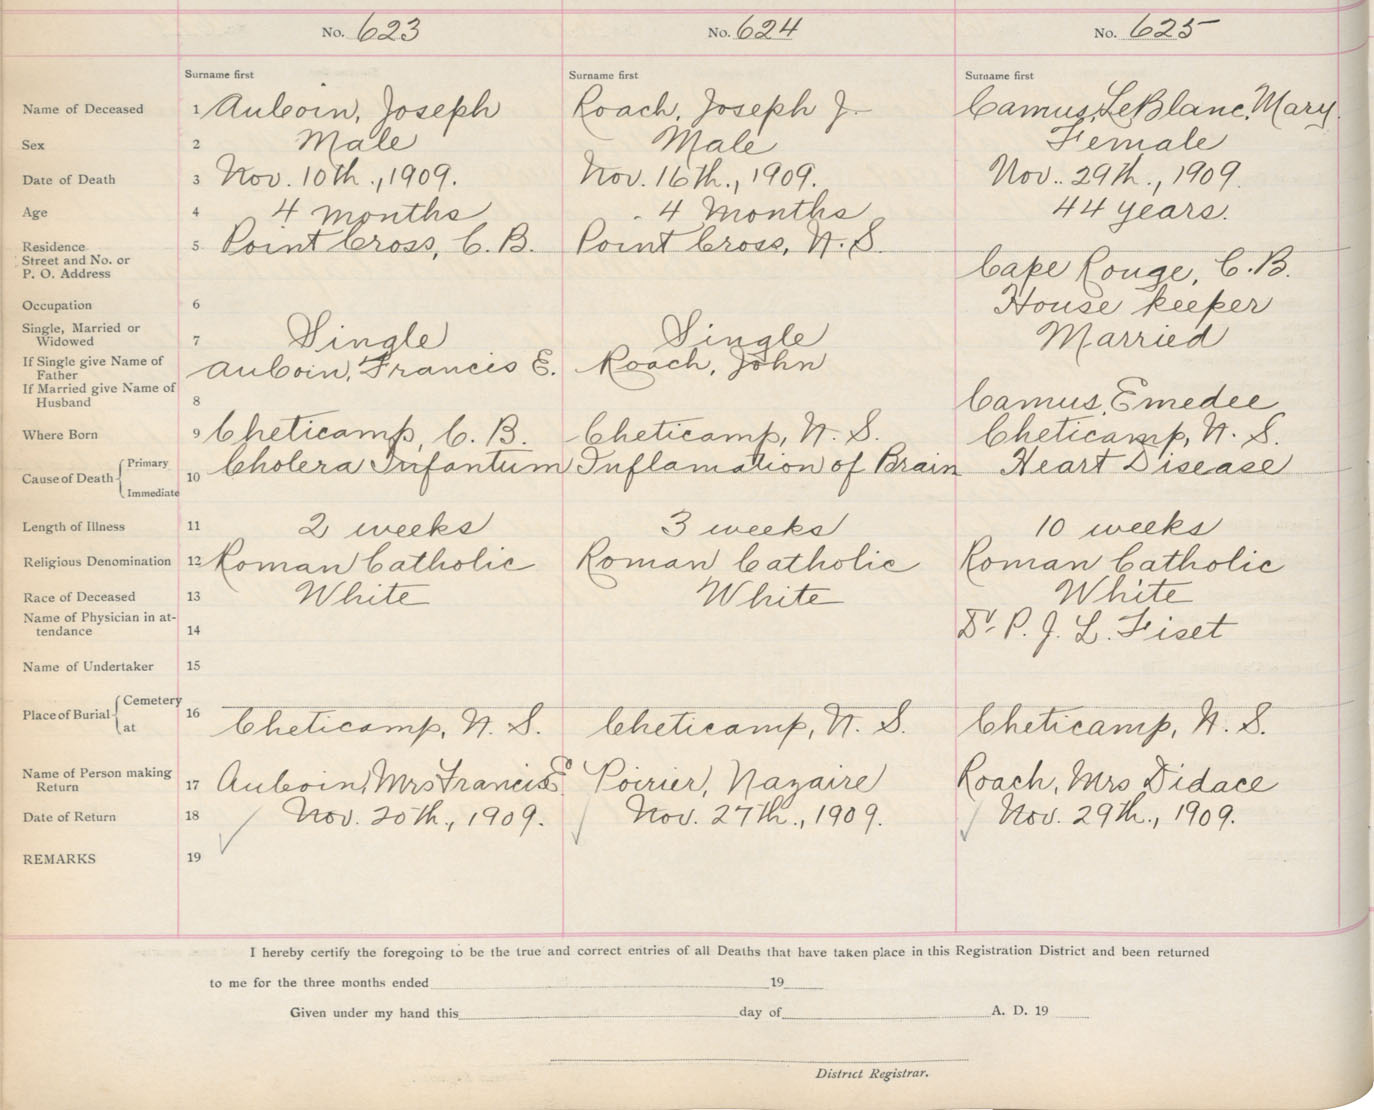 No. 623 No. 624 No. 625
Surname first Surname first Surname first
Name of Deceased 1 AuCoin, Joseph Roach, Joseph J. Camus, LeBlanc, Mary.
Sex 2 Male Male Female
Date of Death 3 Nov. 10th., 1909. Nov. 16th., 1909. Nov. 29th., 1909.
Age 4 4 months 4 Months 44 years.
Residence 5 Point Cross, C. B. Point Cross, N. S.
Street and No. or
P. O. Address Cape Rouge, C. B.
Occupation 6 House keeper
Single, Married or
Widowed 7 Single Single Married
If Single give Name of
Father AuCoin, Francis E. Roach, John
If Married give Name of
Husband 8 Camus, Emedee
Where Born 9 Cheticamp, C. B. Cheticamp, N. S. Cheticamp, N. S.
Cause of Death Primary Cholera Infantum Inflamation of Brain Heart Disease
Immediate 10
Length of Illness 11 2 weeks 3 weeks 10 weeks
Religious Denomination 12 Roman Catholic Roman Catholic Roman Catholic
Race of Deceased 13 White White White
Name of Physician in at-
tendance 14 Dr. P. J. L. Fiset
Name of Undertaker 15
Place of Burial Cemetery
at 16 Cheticamp, N. S. Cheticamp, N. S. Cheticamp, N. S.
Name of Person making
Return 17 AuCoin, Mrs Francis E. Poirier, Nazaire Roach, Mrs Didace
Date of Return 18 Nov. 20th., 1909. Nov. 27th., 1909. Nov. 29th., 1909.
REMARKS 19
I hereby certify the foregoing to be the true and correct entries of all Deaths that have taken place in this Registration District and been returned
to me for the three months ended 19
Given under my hand this day of A. D. 19
District Registrar.